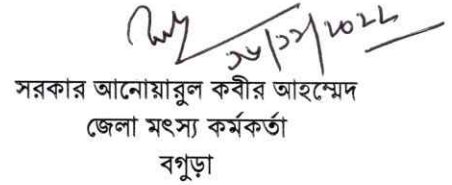 ১৮/১২/২০২২
সরকার আনোয়ারুল কবীর আহম্মেদ
জেলা মৎস্য কর্মকর্তা
বগুড়া